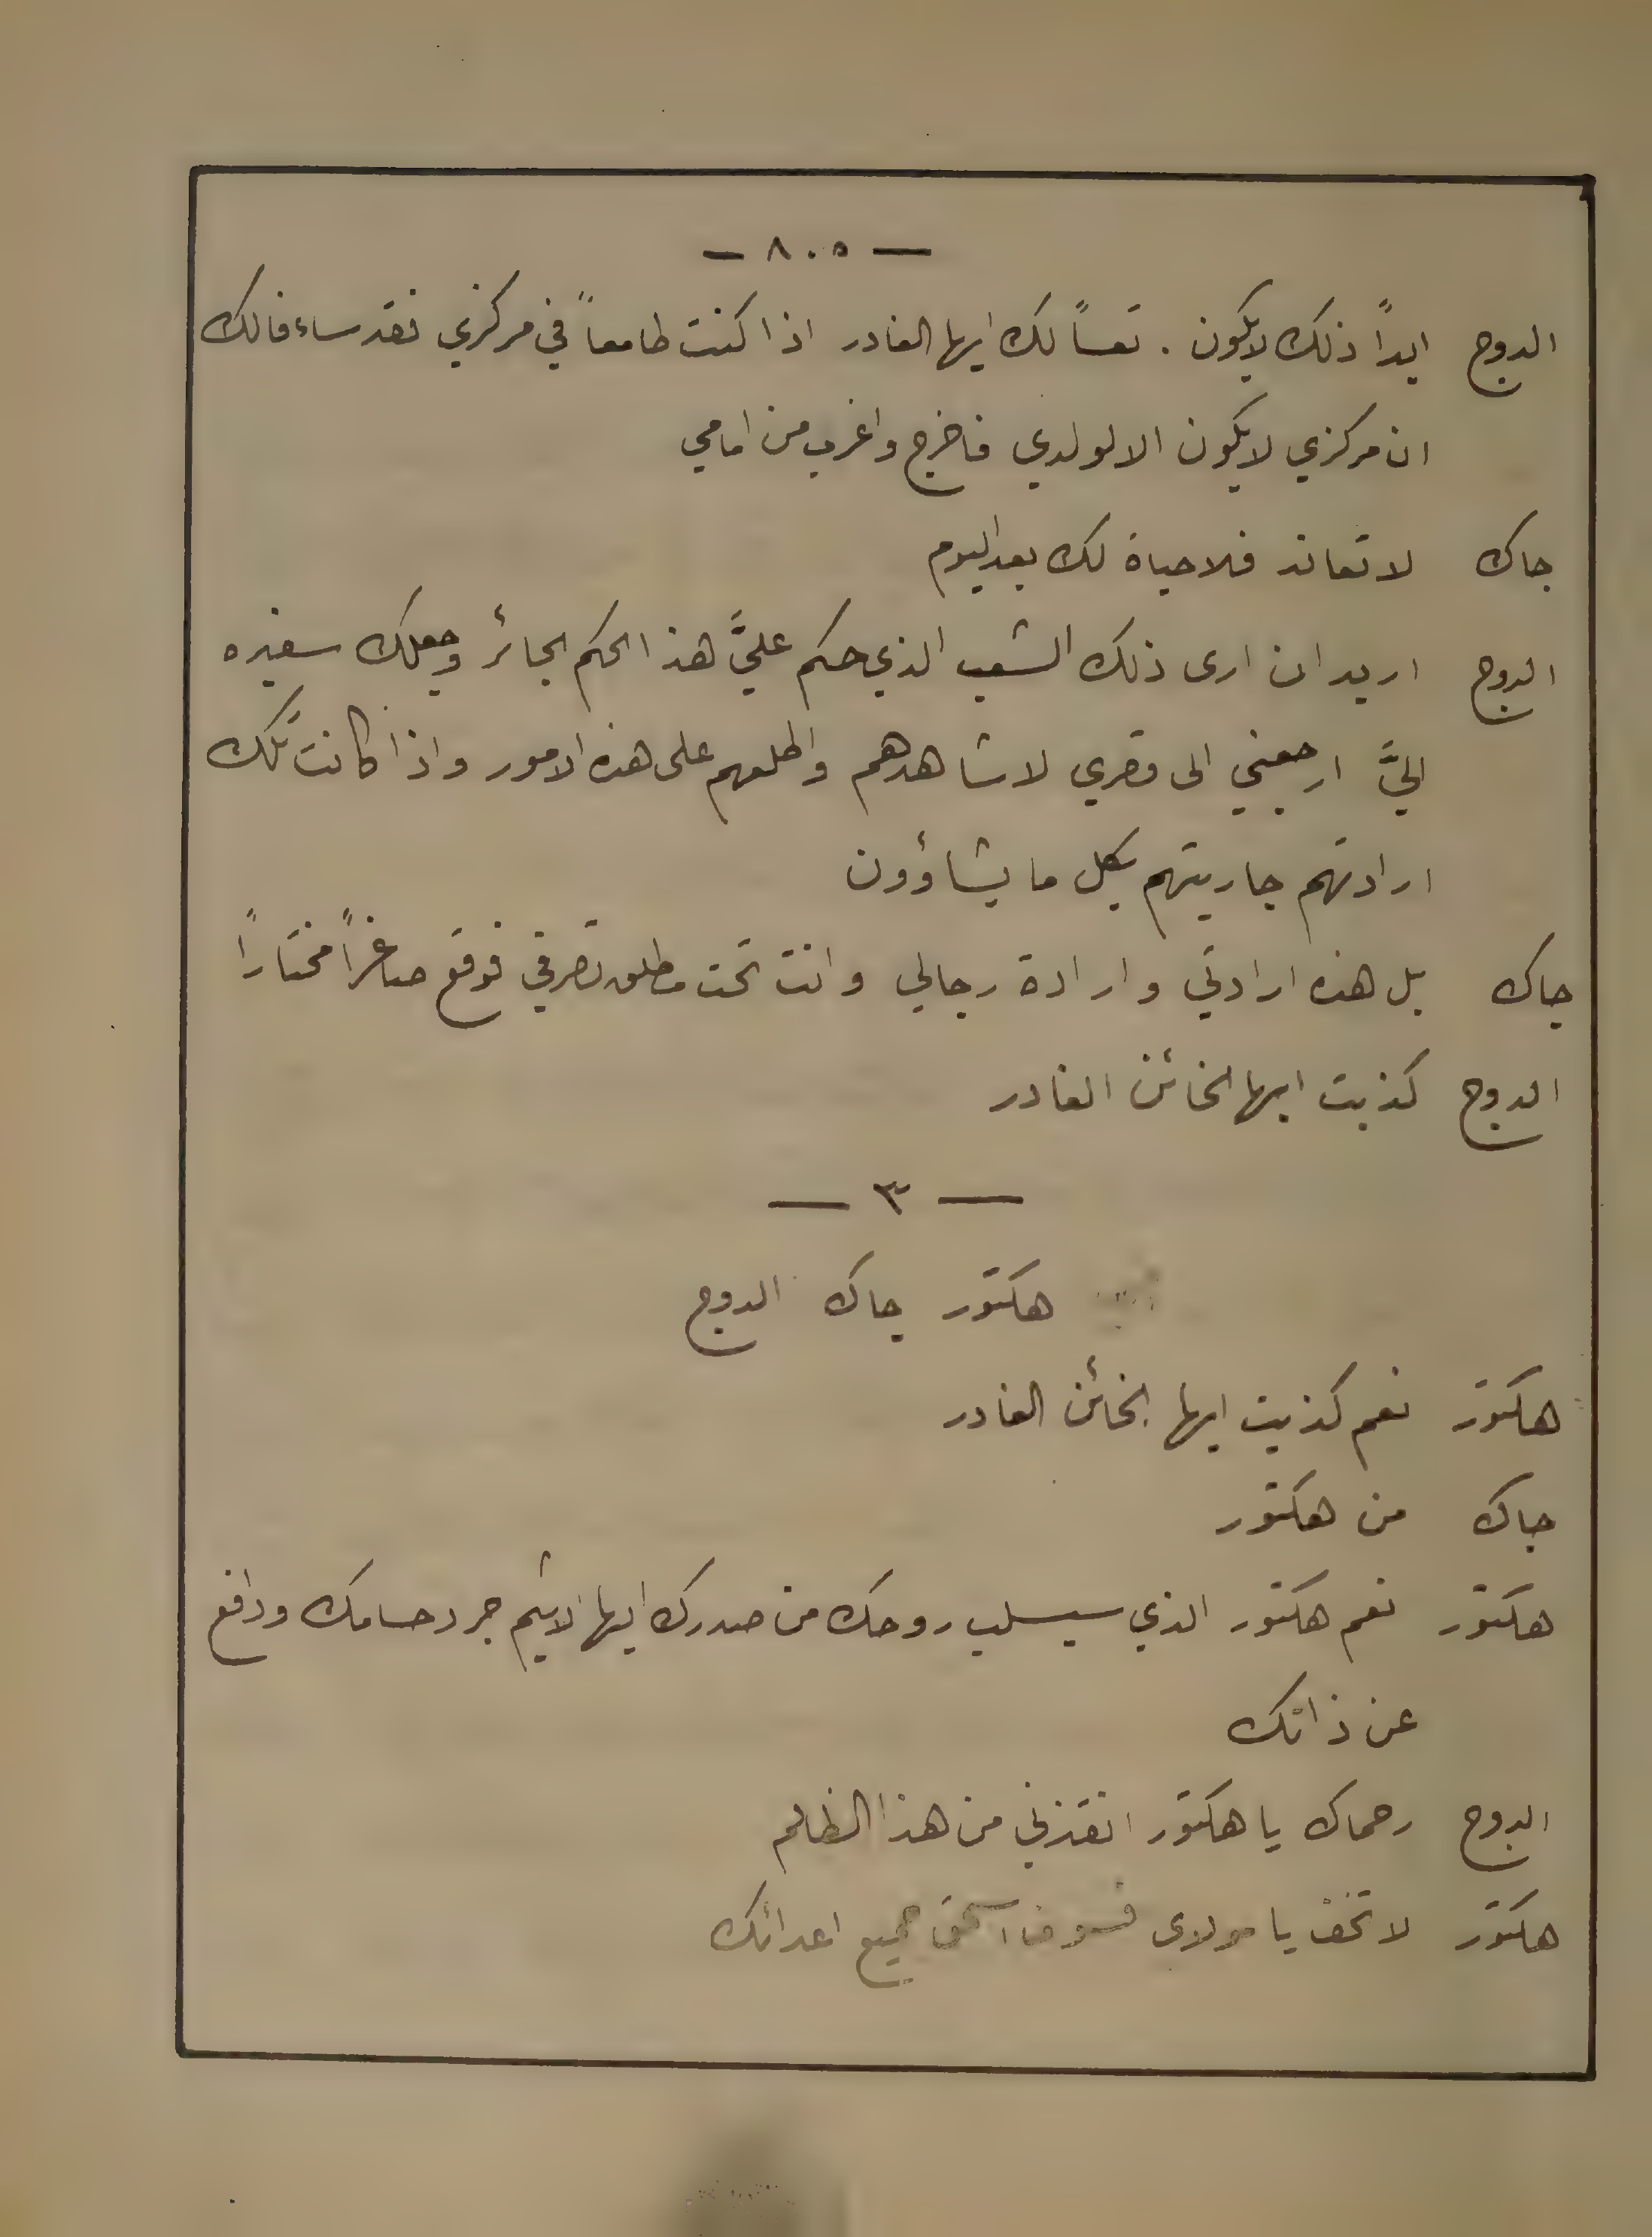 — ٨٠٥ —
الدوج ابداً ذلك لايكون . تعساً لك ايها الغادر اذا كنت طامعاً في مركزي فقد ساء فالك
ان مركزي لايكون الا لولدي فاخرج واغرب من امامي
جاك لا تعاند فلا حياة لك بعد اليوم
الدوج اريد ان ارى ذلك الشعب الذي حكم عليَّ هذا الحكم الجائر وجعلك سفيره
اليَّ ارجعني الى قصري لاشاهدهم واطلعهم على هذه الامور واذا كانت تلك
ارادتهم جاريتهم بكل ما يشاؤون
جاك بل هذه ارادتي وارادة رجالي وانت تحت مطلق تصرفي فوقع صاغراً مختاراً
الدوج كذبت ايها الخائن الغادر
— ٣ —
هكتور جاك الدوج
هكتور نعم كذبت ايها الخائن الغادر
جاك من هكتور
هكتور نعم هكتور الذي سيسلب روحك من صدرك ايها الاثيم جرد حسامك ودافع
عن ذاتك
الدوج رحماك يا هكتور انقذني من هذا الظالم
هكتور لا تخف يا مولاي فسوف اسحق جميع اعدائك